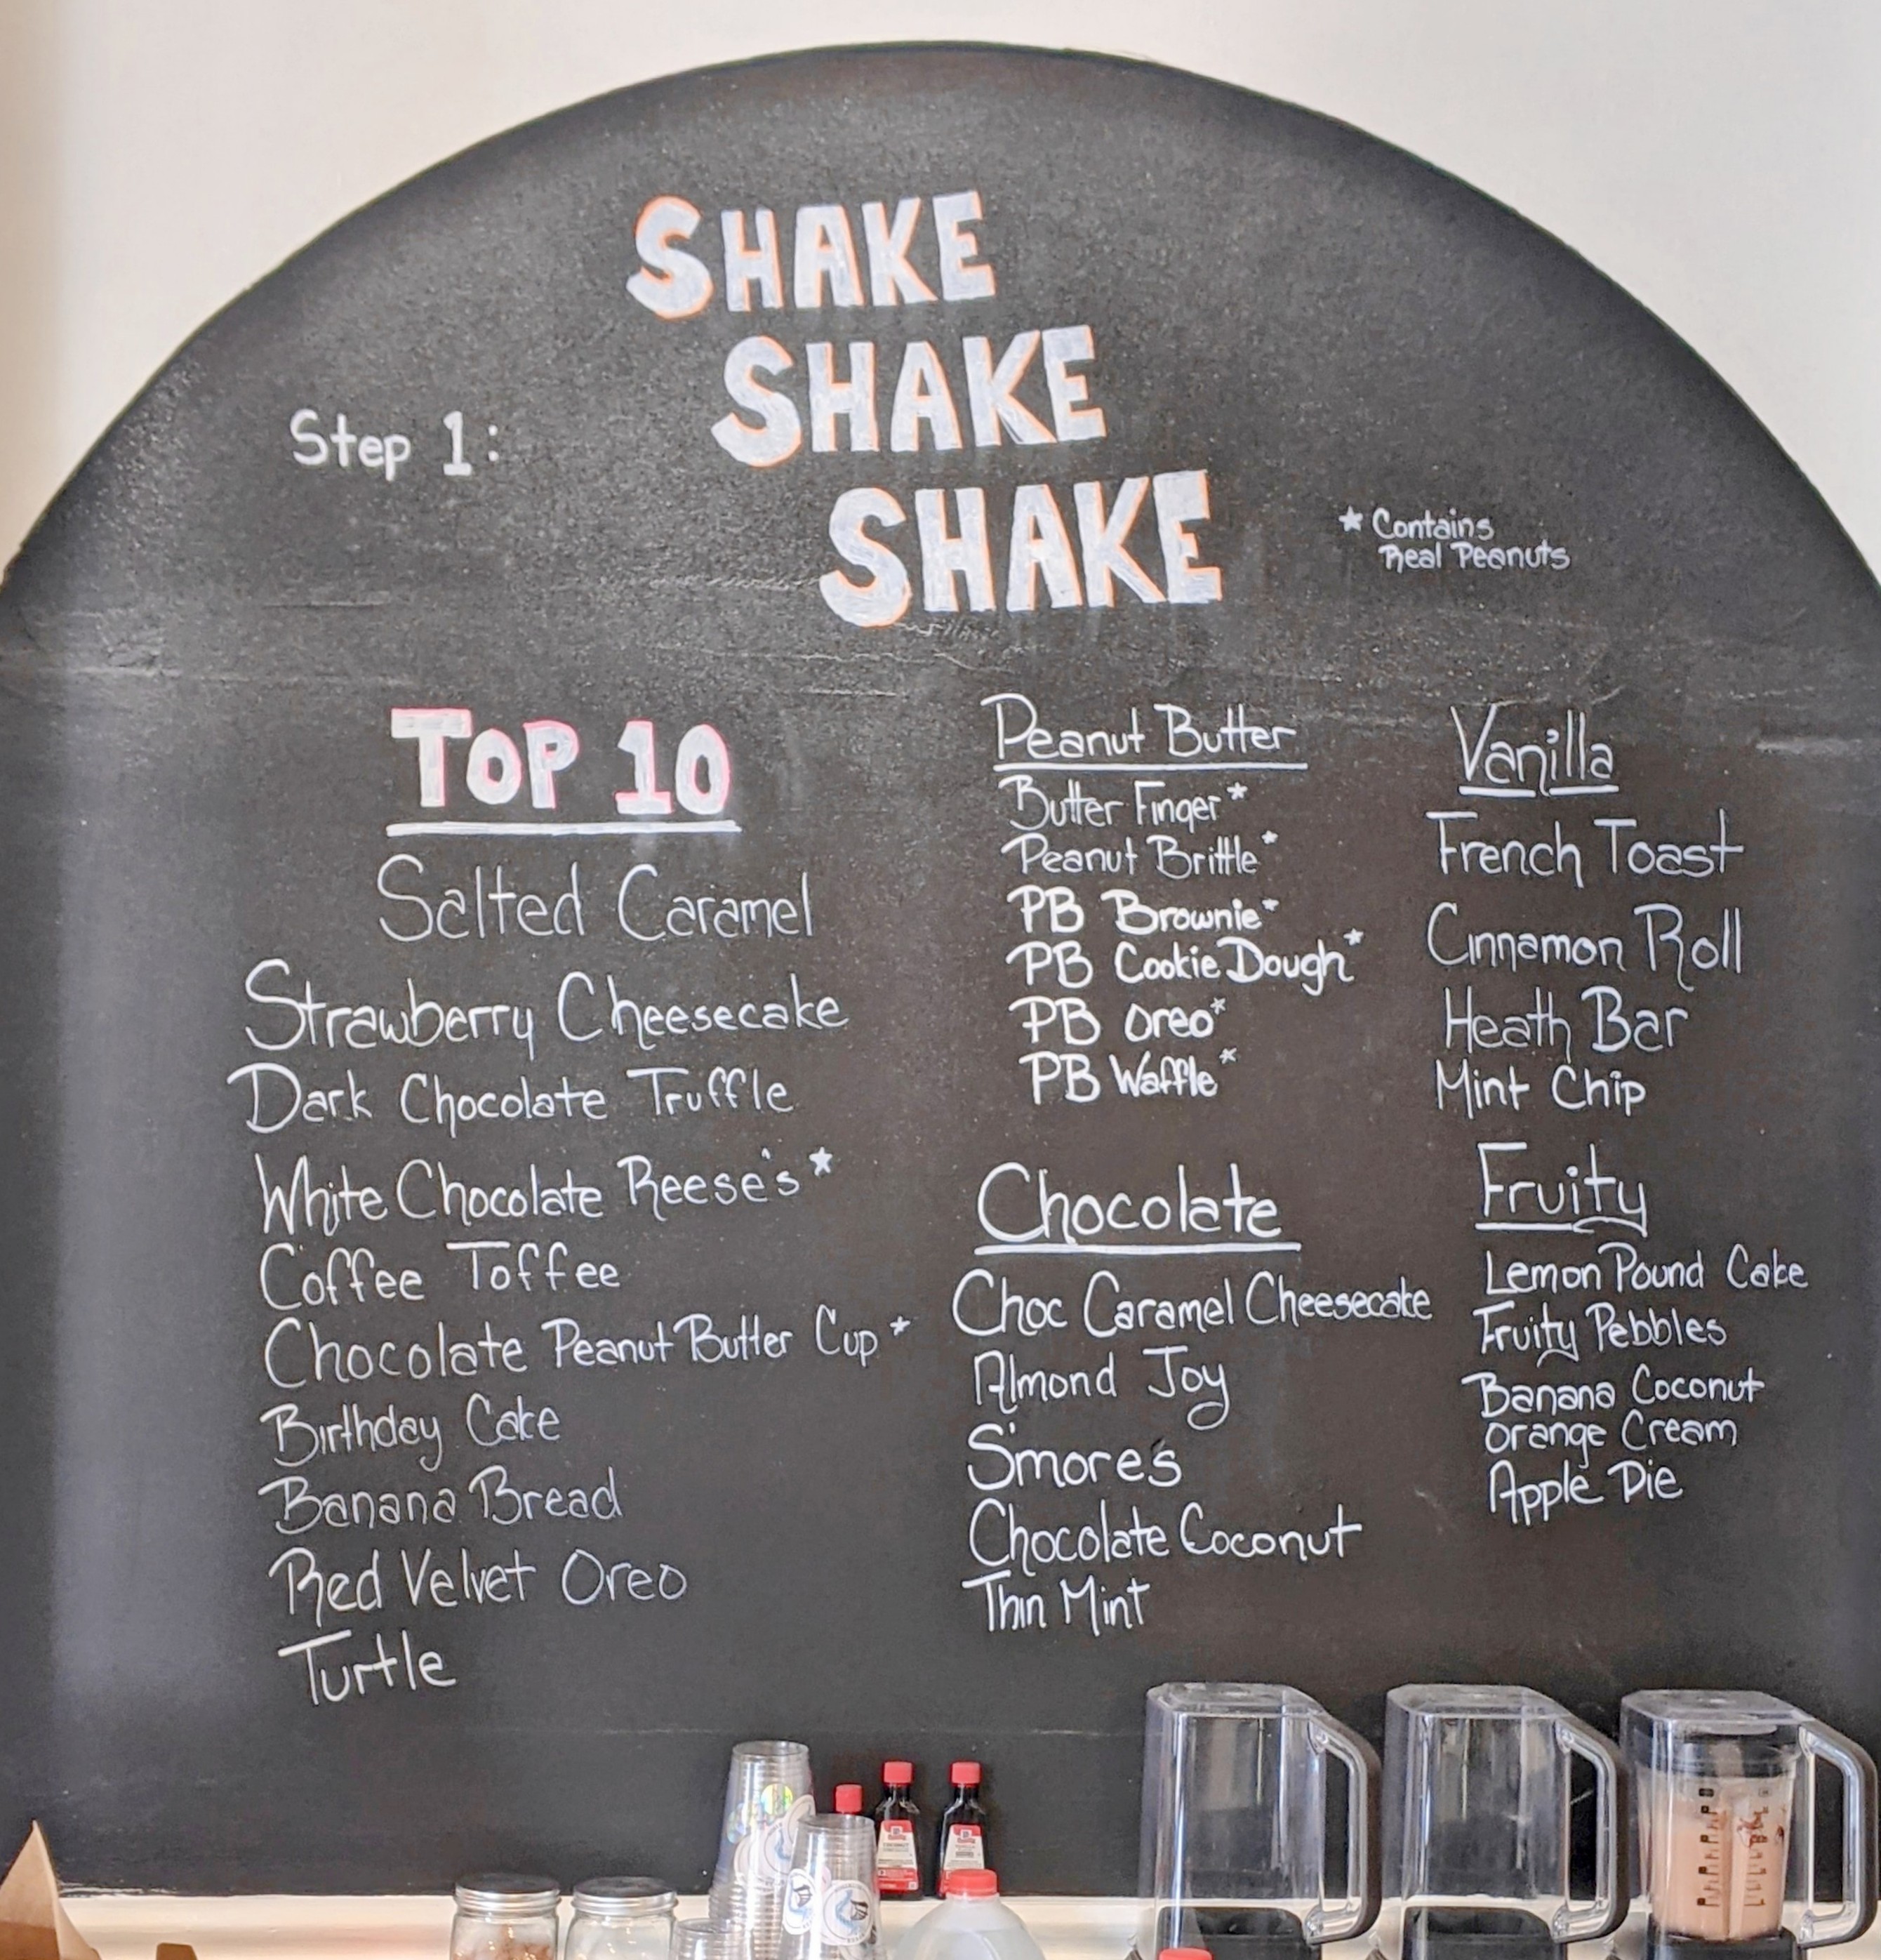 SHAKE
SHAKE
SHAKE
Step 1:
* Contains
Real Peanuts
TOP 10
Salted Caramel
Strawberry Cheesecake
Dark Chocolate Truffle
White Chocolate Reese's*
Coffee Toffee
Chocolate Peanut Butter Cup*
Birthday Cake
Banana Bread
Red Velvet Oreo
Turtle
Peanut Butter
Butter Finger*
Peanut Brittle*
PB Brownie*
PB Cookie Dough*
PB Oreo*
PB Waffle*
Chocolate
Choc Caramel Cheesecake
Almond Joy
S'more's
Chocolate Coconut
Thin Mint
Vanilla
French Toast
Cinnamon Roll
Heath Bar
Mint Chip
Fruity
Lemon Pound Cake
Fruity Pebbles
Banana Coconut
Orange Cream
Apple Pie